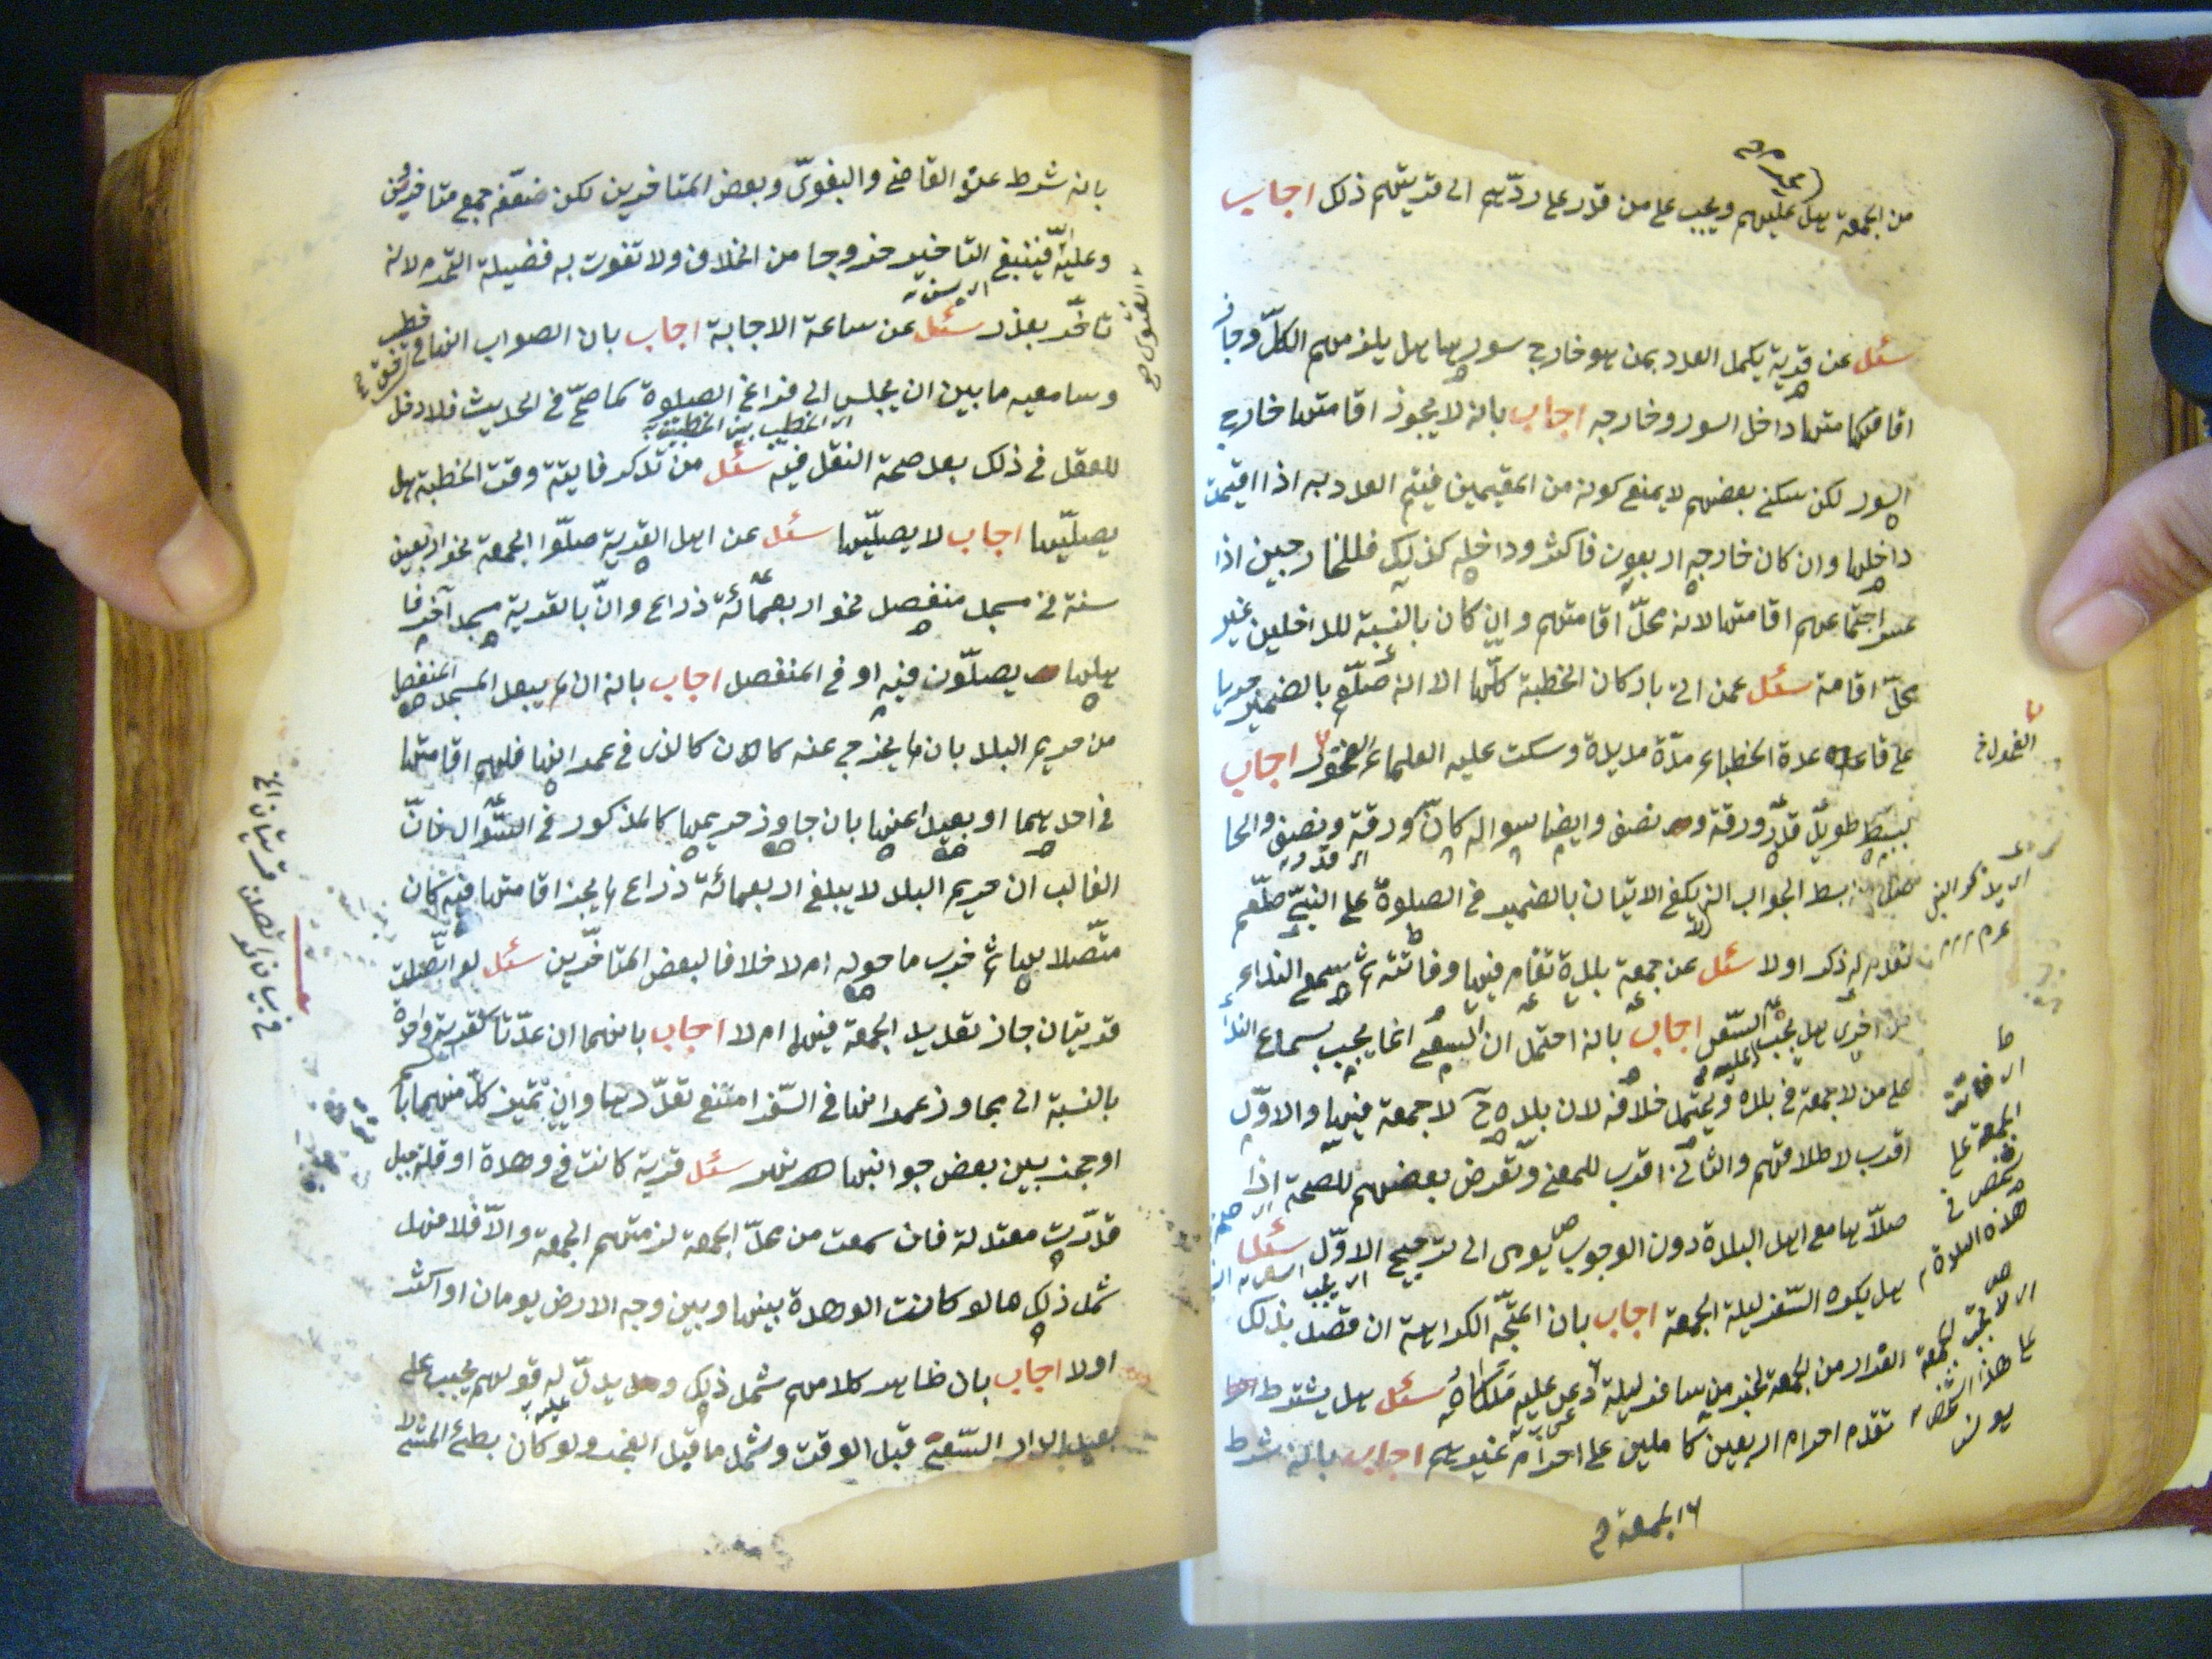 من الجمعة هل عليهم ويجب على من قدر على ردّهم الى قريتهم ذلك اجاب
سئل عن قرية يكمل العدد بمن هو خارج سورها هل يلزمهم الكلّ وجاز
اقامتها داخل السور وخارجه اجاب بانه لا يجوز اقامتها خارج
السور لكن سكنى بعضهم لا يمنع كونه من المقيمين فيتم العدد به اذا اقيمت
داخلها وان كان خارجه اربعون فاكثر وداخله كذلك فللخارجين اذا
عسر اجتماعهم اقامتها لانه محلّ اقامتهم وان كان بالنسبة للداخلين غير
محلّ اقامة سئل عمن اتى باركان الخطبة كلّها الا انه صلّى بالضمير جريا
على قاعدة عدة الخطباء مدّة مديدة وسكت عليه العلماء الفحول اجاب
ببسط طويل قدر ورقة ونصف وايضا سواله كان ورقة ونصف والحا
ابسط الجواب انه لا يكفي الاتيان بالضمير في الصلوة على النبيّ صلعم
تقدم له ذكر اولا سئل عن جمعة بلدة تقام فيها وفاتته ثم سمع النداء
من اخرى هل يجب السعي اجاب بانه احتمل ان السعي انما يجب بسماع النداء
على من لا جمعة في بلده ويحتمل خلافه لان بلده ح لا جمعة فيها والاوّل
اقرب لاطلاقهم والثاني اقرب للمعنى وتعرض بعضهم للصحة اذا
صلّاها مع اهل البلدة دون الوجوب يومى الى ترجيح الاوّل سئل
هل يكره السفر ليلة الجمعة اجاب بان المتّجه الكراهة ان قصد بذلك
الفرار من الجمعة لخبر من سافر ليلة دعى عليه ملكاه سئل هل يشترط
تقدم احرام اربعين كاملين على احرام غيرهم اجاب بانه شرط
الفحول
اى يذكر النبى
اى فاتته
الجمعة على
شخص فى
هذه البلدة
اى لا تجب الجمعة
على هذا الشخص
١٦ الجمعة
بانه شرط عند القاضى والبغوىّ وبعض المتاخرين لكن ضعّفه جمع متاخرون
وعليه فينبغى التاخير خروجا من الخلاف ولا تفوت به فضيلة التقدم لانه
تاخّر بعذر سئل عن ساعة الاجابة اجاب بان الصواب انها فى خطيب
وسامعيه ما بين ان يجلس الى فراغ الصلوة كما صحّ فى الحديث فلا دخل
اى الخطيب بين الخطبتين
للعقل فى ذلك بعد صحة النقل فيه سئل من تذكر فايتة وقت الخطبة هل
يصليّها اجاب لا يصليّها سئل عن اهل القرية صلّوا الجمعة نحو اربعين
سنة فى مسجد منفصل نحو اربعمائة ذراع وانّ بالقرية مسجد آخر فا
هلها يصلّون فيه او فى المنفصل اجاب بانه ان لم يبعد المسجد المنفصل
من حريم البلد بان لم يخرج عنه كما لان كالذى فى عمرانها فلهم اقامتها
فى احدهما او بعيدا عنها بان جاوز حريمها كالمذكور فى السّؤال فانّ
الغالب ان حريم البلد لا يبلغ اربعمائة ذراع لم يجز اقامتها فيه كان
متّصلا بها ثم خرب ما حوله ام لا خلافا لبعض المتاخّرين سئل لو اتّصلت
قريتان جاز تعديد الجمعة فيها ام لا اجاب بانهما ان عدّتا كقرية واحدة
بالنسبة الى مجاوز عمرانها فى السّفر امتنع تعدّدها وان تميز كلّ منهما با
او حجز بين بعض جوانبها سئل قرية كانت فى وهدة او قلة جبل
قدّرت معتدلة فان سمعت من محلّ الجمعة لزمتهم الجمعة والّا فلا فهل
شمل ذلك ما لو كانت الوهدة بينها وبين وجه الارض يومان او اكثر
او لا اجاب بان ظاهر كلامهم شمل ذلك ويدلّ له قولهم يجب على
بعيد الدار السّعى قبل الوقت وشمل ما قبل الفجر ولو كان بطئ المشى
فى بيان لو اتصلت قريتان الخ